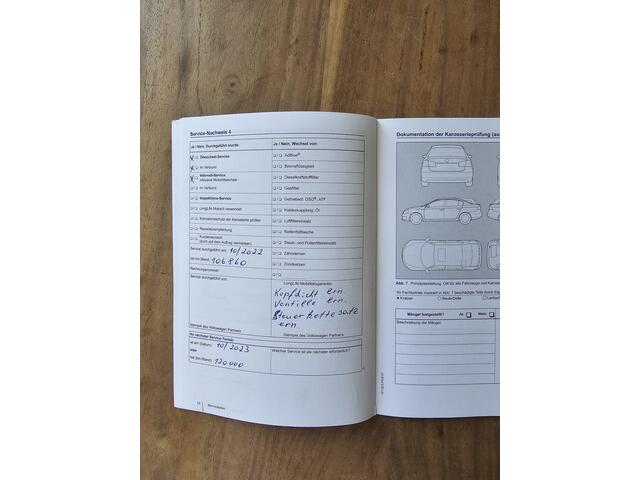 Service-Nachweis 4
Ja / Nein, Durchgeführt wurde:
Ölwechsel-Service
im Verbund
Intervall-Service
inklusive Motorölwechsel
im Verbund
Inspektions-Service
LongLife Motoröl verwendet
Korrosionsschutz der Karosserie prüfen
Reparaturempfehlung
Kundenwunsch
(auch auf dem Auftrag vermerken)
Service durchgeführt am: 10/2022
bei km-Stand: 106960
Rechnungsnummer:
Service durchgeführt von:
Stempel des Volkswagen Partners
Ihr nächster Service-Termin:
ist am (Datum): 10/2023
oder
bei (km-Stand): 120000
Ja / Nein, Wechsel von:
AdBlue®
Bremsflüssigkeit
Dieselkraftstofffilter
Gasfilter
Getriebeöl: DSG®, ATF
Haldexkupplung: Öl
Luftfiltereinsatz
Reifenfüllflasche
Staub- und Pollenfiltereinsatz
Zahnriemen
Zündkerzen
LongLife Mobilitätsgarantie:
Kopfdicht ern.
Ventille ern.
Steuerkettesatz
ern.
Stempel des Volkswagen Partners
Welcher Service ist als nächster erforderlich?
Dokumentation der Karosserieprüfung (au
Abb. 7 Prinzipdarstellung: Gilt für alle Fahrzeuge und Kaross
Ihr Fachbetrieb markiert in Abb. 7 beschädigte Teile durch folg
Kratzer
Beule/Delle
Mängel festgestellt?
Ja
Nein
Beschreibung der Mängel: